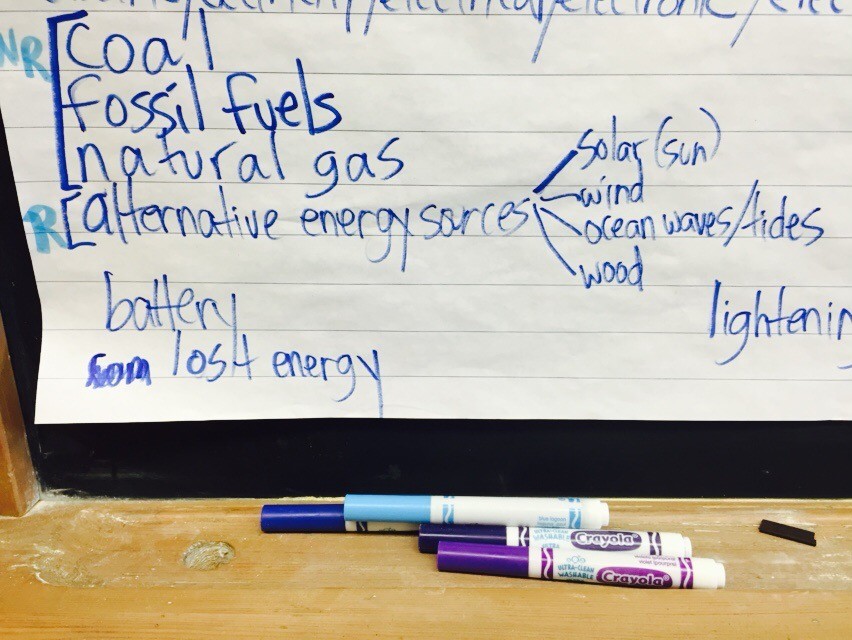 electrical/electronic/elec
NR
coal
fossil fuels
natural gas
R
alternative energy sorces
solar (sun)
wind
ocean waves/tides
wood
battery
lightenin
lost energy
ULTRA-CLEAN
WASHABLE
Crayola
ULTRA-CLEAN
WASHABLE
Crayola